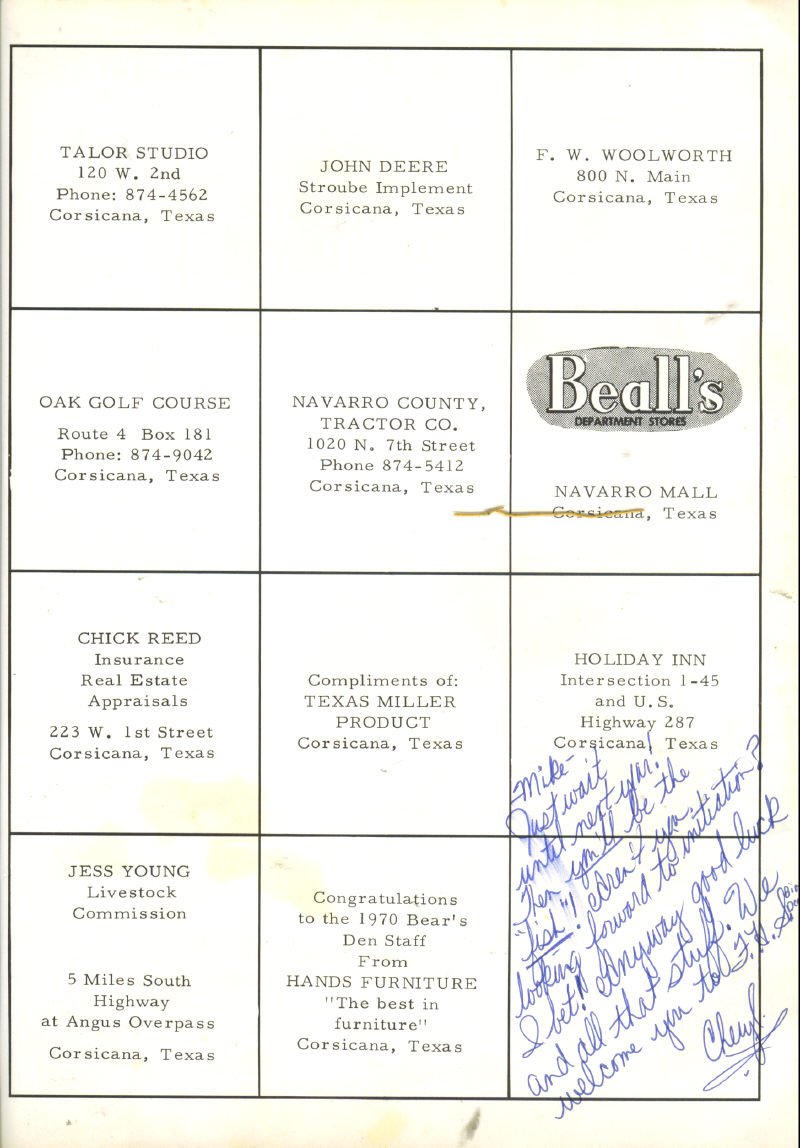 TALOR STUDIO
120 W. 2nd
Phone: 874-4562
Corsicana, Texas
JOHN DEERE
Stroube Implement
Corsicana, Texas
F. W. WOOLWORTH
800 N. Main
Corsicana, Texas
OAK GOLF COURSE
Route 4 Box 181
Phone: 874-9042
Corsicana, Texas
NAVARRO COUNTY,
TRACTOR CO.
1020 N. 7th Street
Phone 874-5412
Corsicana, Texas
Beall's
DEPARTMENT STORES
NAVARRO MALL
Corsicana, Texas
CHICK REED
Insurance
Real Estate
Appraisals
223 W. 1st Street
Corsicana, Texas
Compliments of:
TEXAS MILLER
PRODUCT
Corsicana, Texas
HOLIDAY INN
Intersection 1-45
and U.S.
Highway 287
Corsicana, Texas
JESS YOUNG
Livestock
Commission
5 Miles South
Highway
at Angus Overpass
Corsicana, Texas
Congratulations
to the 1970 Bear's
Den Staff
From
HANDS FURNITURE
"The best in
furniture"
Corsicana, Texas
Mike-
Just wait
until next year!
Then you'll be the
"fish"! Aren't you
looking forward to initiation?
I bet! Anyway good luck
and all that stuff. We
welcome you to
Cheryl